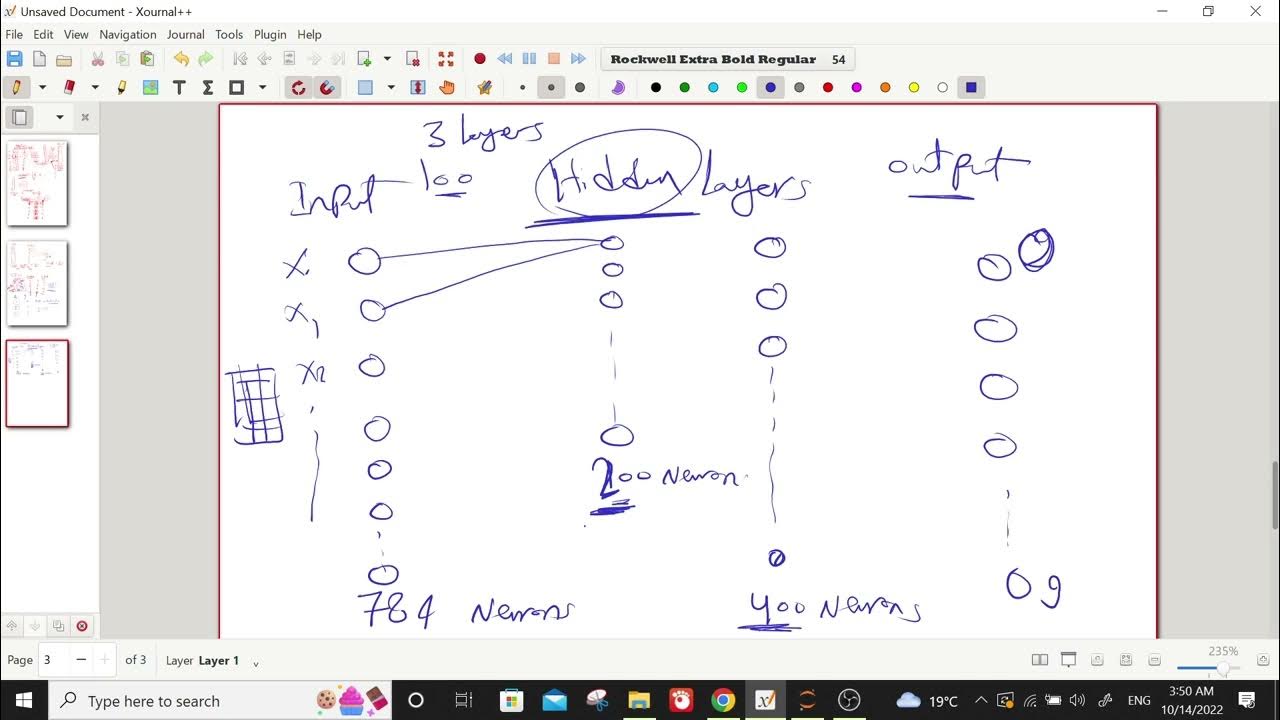 Unsaved Document - Xournal++
File Edit View Navigation Journal Tools Plugin Help
Rockwell Extra Bold Regular 54
3 Layers
Input 100 Hidden Layers output
X
X1
X2
200 Neuron
0 9
784 Neurons 400 Neurons
Page 3 of 3 Layer Layer 1 235%
Type here to search 19°C ENG 3:50 AM
10/14/2022